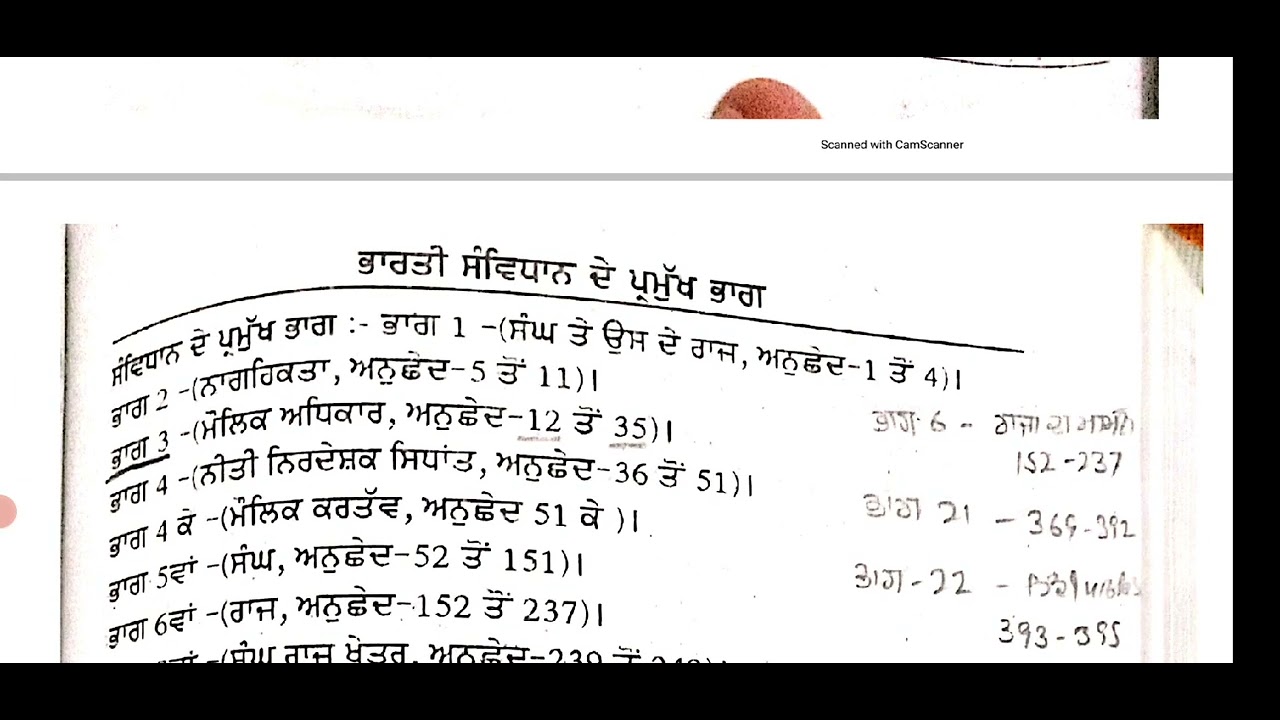 Scanned with CamScanner
ਭਾਰਤੀ ਸੰਵਿਧਾਨ ਦੇ ਪ੍ਰਮੁੱਖ ਭਾਗ
ਸੰਵਿਧਾਨ ਦੇ ਪ੍ਰਮੁੱਖ ਭਾਗ :- ਭਾਗ 1 -(ਸੰਘ ਤੇ ਉਸ ਦੇ ਰਾਜ, ਅਨੁਛੇਦ-1 ਤੋਂ 4)।
ਭਾਗ 2 -(ਨਾਗਰਿਕਤਾ, ਅਨੁਛੇਦ-5 ਤੋਂ 11)।
ਭਾਗ 3 -(ਮੌਲਿਕ ਅਧਿਕਾਰ, ਅਨੁਛੇਦ-12 ਤੋਂ 35)।
ਭਾਗ 4 -(ਨੀਤੀ ਨਿਰਦੇਸ਼ਕ ਸਿਧਾਂਤ, ਅਨੁਛੇਦ-36 ਤੋਂ 51)।
ਭਾਗ 4 ਕੇ -(ਮੌਲਿਕ ਕਰਤੱਵ, ਅਨੁਛੇਦ 51 ਕੇ )।
ਭਾਗ 5ਵਾਂ -(ਸੰਘ, ਅਨੁਛੇਦ-52 ਤੋਂ 151)।
ਭਾਗ 6ਵਾਂ -(ਰਾਜ, ਅਨੁਛੇਦ-152 ਤੋਂ 237)।
-(ਸੰਘ ਰਾਜ ਖੇਤਰ, ਅਨੁਛੇਦ-239 ਤੋਂ
ਭਾਗ 6 - ਰਾਜਾਂ ਦਾ
152-237
ਭਾਗ 21 - 369-392
ਭਾਗ-22 -
393-395